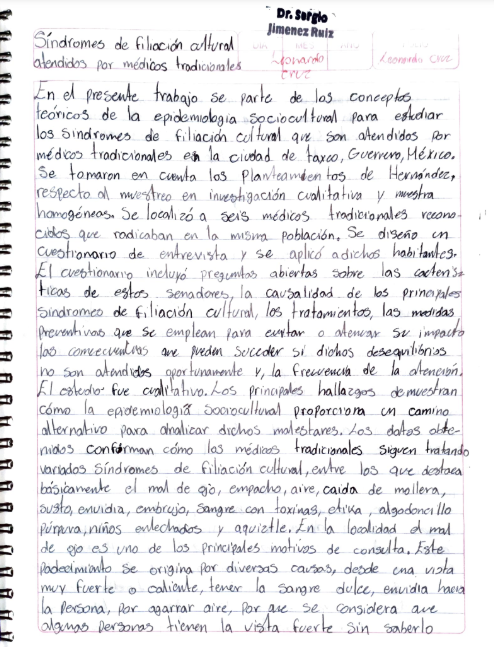 Dr. Sergio
Jimenez Ruiz
Síndromes de filiación cultural
atendidos por médicos tradicionales
MES
Leonardo
Cruz
Leonardo Cruz
En el presente trabajo se parte de los conceptos
teóricos de la epidemiología sociocultural para estudiar
los Síndromes de filiación cultural que son atendidos por
médicos tradicionales en la ciudad de taxco, Guerrero, México.
Se tomaron en cuenta los Planteamientos de Hernández,
respecto al muestreo en investigación cualitativa y muestra
homogéneas. Se localizó a seis médicos tradicionales recono-
cidos que radicaban en la misma población. Se diseño un
cuestionario de entrevista y se aplicó a dichos habitantes.
El cuestionario incluyó preguntas abiertas sobre las
ticas de estos senadores, la causalidad de los principales
Sindromeo de filiación cultural, los tratamientos, las medidas
preventivas que se emplean para evitar o atenuar su impacto
las consecuencias que pueden suceder si dichos desequilibrios
no son atendidos oportunamente y, la frecuencia de la atención.
El estudio fue cualitativo. Los principales hallazgos demuestran
cómo la epidemiología Sociocultural proporciona un camino
alternativo para analizar dichos malestares. Los datos obte-
nidos conforman cómo las médicos tradicionales siguen tratando
variados síndromes de filiación cultural, entre los que destaca
básicamente el mal de ojo, empacho, aire, caida de mollera,
susto, envidia, embrujo, sangre con toxinas, etika, algodoncillo
púrpura, niños enlechados y aquiztle. En la localidad el mal
de ojo es uno de los principales motivos de consulta. Este
padecimiento se origina por diversas causas, desde una vista
muy fuerte o caliente, tener la sangre dulce, envidia hacia
la persona, por agarrar aire, por que se considera que
algunas personas tienen la vista fuerte sin saberlo